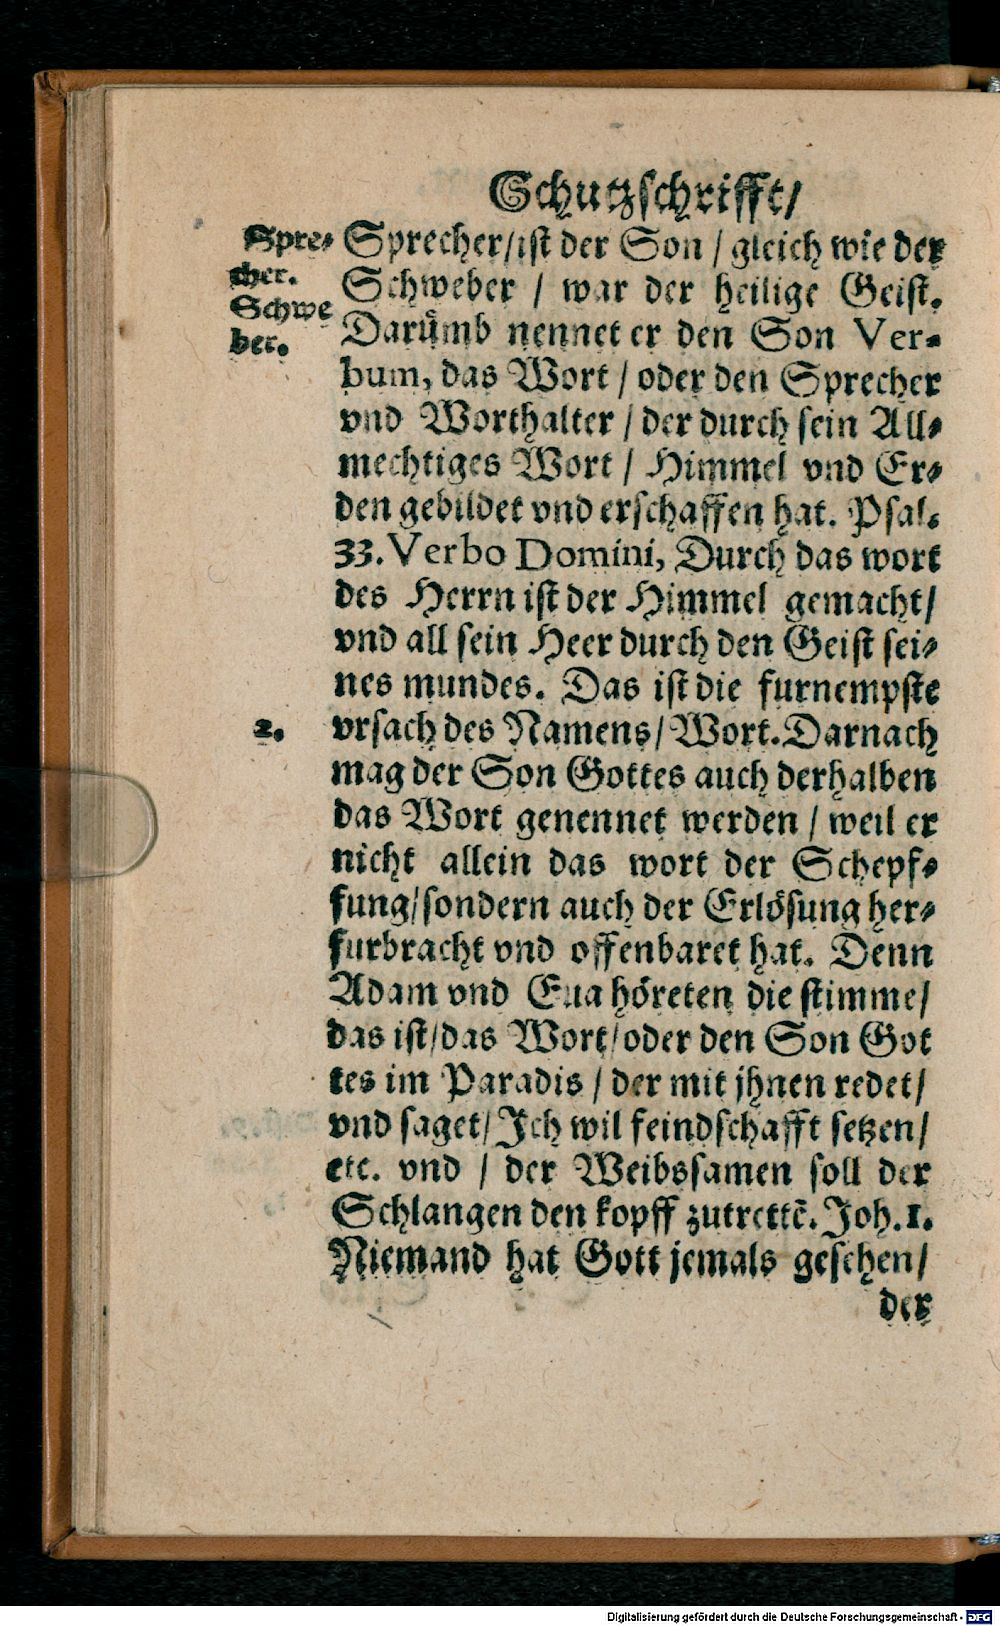 Schutzschrifft/
Spre-
cher.
Schwe
ber.
Sprecher/ist der Son / gleich wie der
Schweber / war der heilige Geist.
Darümb nennet er den Son Ver-
bum, das Wort / oder den Sprecher
vnd Worthalter / der durch sein All-
mechtiges Wort / Himmel vnd Er-
den gebildet vnd erschaffen hat. Psal.
33. Verbo Domini, Durch das wort
des Herrn ist der Himmel gemacht/
vnd all sein Heer durch den Geist sei-
nes mundes. Das ist die furnempste
2.
vrsach des Namens/ Wort. Darnach
mag der Son Gottes auch derhalben
das Wort genennet werden / weil er
nicht allein das wort der Schepf-
fung/sondern auch der Erlösung her-
furbracht vnd offenbaret hat. Denn
Adam vnd Eua höreten die stimme/
das ist/das Wort/oder den Son Got
tes im Paradis / der mit jhnen redet/
vnd saget/ Jch wil feindschafft setzen/
etc. vnd / der Weibssamen soll der
Schlangen den kopff zutrettē. Joh. 1.
Niemand hat Gott jemals gesehen/
der
Digitalisierung gefördert durch die Deutsche Forschungsgemeinschaft - DFG